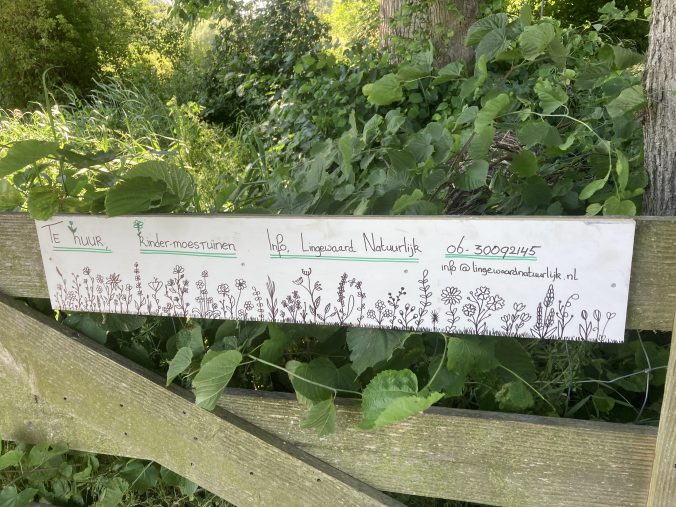 Te huur, Kinder-moestuinen Info, Lingewaard Natuurlijk 06-30092145
info@lingewaardnatuurlijk.nl